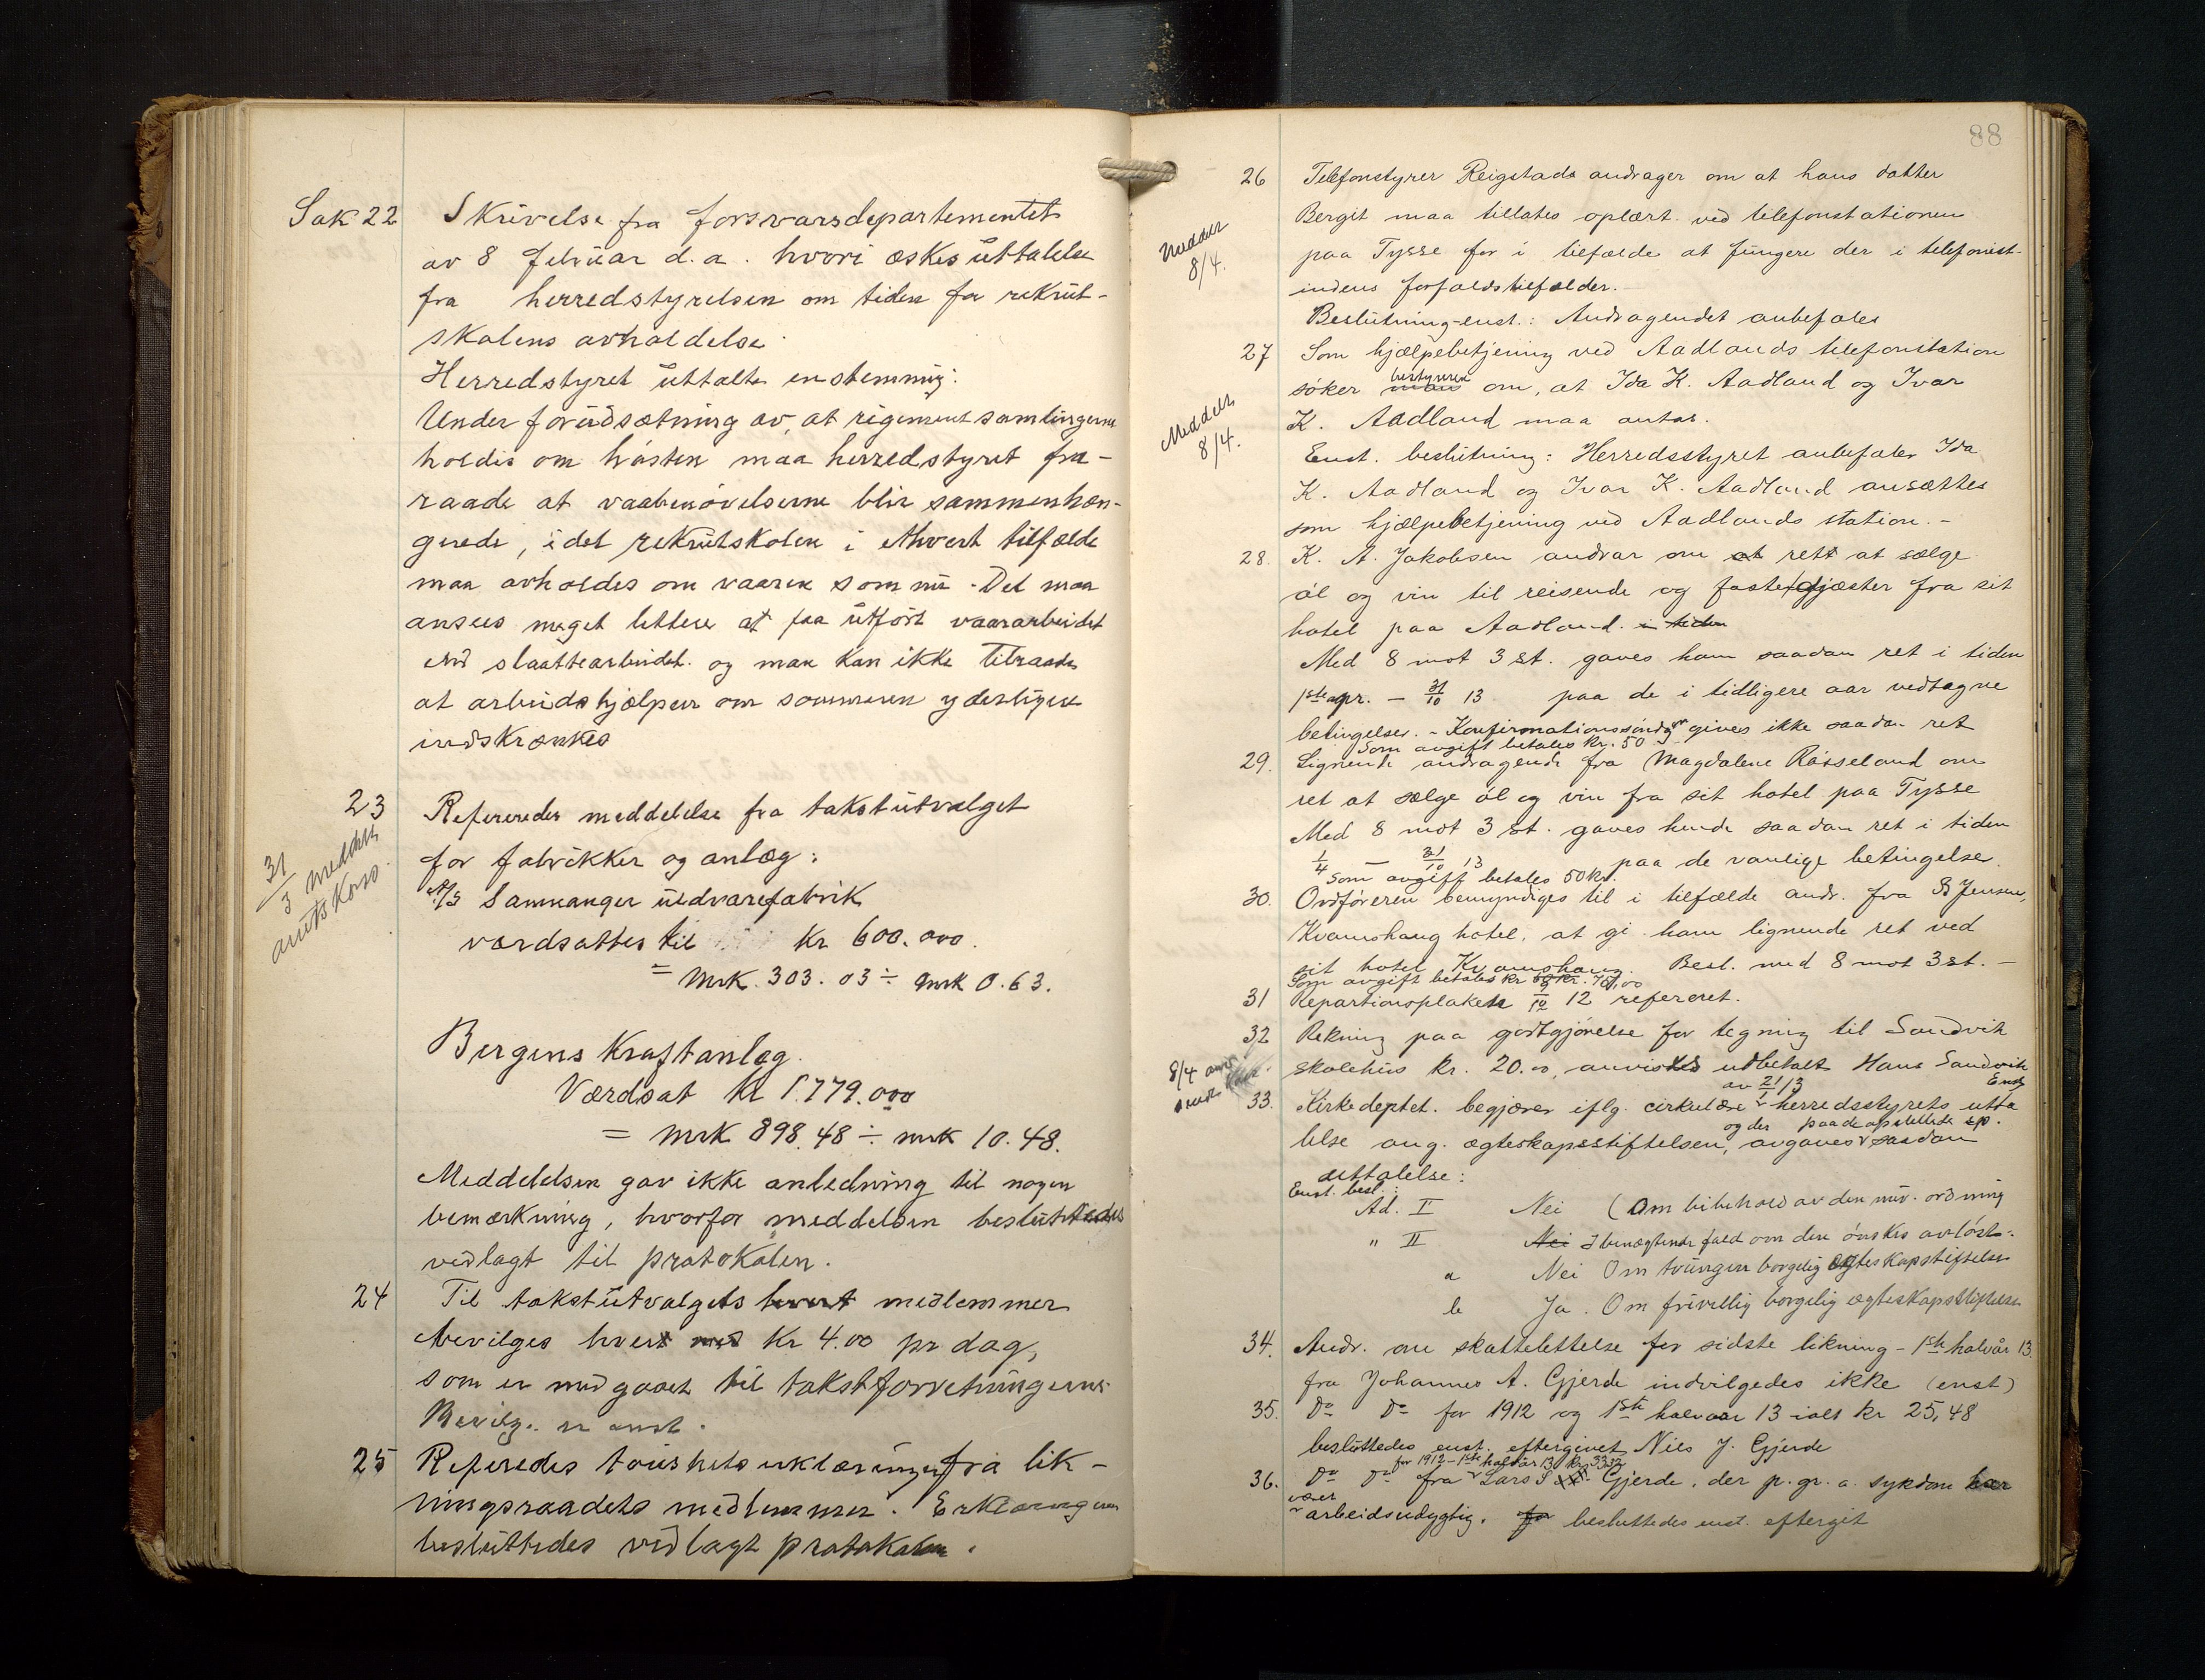 Sak 22 Skrivelse fra forsvarsdepartementet
av 8 februar d.a. hvori æskes uttalelse
fra herredstyrelsen om tiden for rekrut-
skolens avholdelse
Herredstyret uttalte enstemmig:
Under forudsætning av, at regimentsamlingerne
holdes om høsten maa herredstyret fra-
raade at vaabenøvelserne blir sammenhæn-
gende, idet rekrutskolen i ethvert tilfælde
maa avholdes om vaaren som nu. Det maa
ansees meget lettere at faa utført vaararbeidet
end slaattearbeidet og man kan ikke tilraade
at arbeidshjælpen om sommeren yderligere
indskrænkes
23 Refereredes meddelelse fra takstutvalget
31/3 meddelt
amtskont.
for fabrikker og anlæg:
A/S Samnanger uldvarefabrik
værdsattes til Kr 600.000
= Mrk. 303.03 ÷ mrk 0.63.
Bergens Kraftanlæg
Værdsat Kr 1.779.000
= Mrk 898.48 ÷ mrk 10.48.
Meddelelsen gav ikke anledning til nogen
bemærkning, hvorfor meddelsen besluttedes
vedlagt til protokolen.
24 Til takstutvalgets hvert medlemmer
bevilges hvert med Kr 4.00 pr dag,
som er medgaaet til takstforretningerne
Bevilg. er enst.
25 Referedes taushetserklæringer fra lik-
ningsraadets medlemmer. Erklæringerne
besluttedes vedlagt protokolen.
88
26 Telefonstyrer Reigstads andrager om at hans datter
Bergit maa tillates oplært ved telefonstationen
Meddelt
8/4.
paa Tysse for i tilfælde at fungere der i telefonist-
indens forfaldstilfælder.
Beslutning-enst.: Andragendet anbefales
27 Som hjælpebetjening ved Aadlands telefonstation
søker man bestyreren om, at Ida K. Aadland og Ivar
Meddelt
8/4.
K. Aadland maa antas.
Enst. beslutning: Herredsstyret anbefaler Ida
K. Aadland og Ivar K. Aadland ansættes
som hjælpebetjening ved Aadlands station.-
28. K. A. Jakobsen andrar om at rett at sælge
øl og vin til reisende og faste gjæster fra sit
hotel paa Aadland. i tiden
Med 8 mot 3 st. gaves ham saadan ret i tiden
1ste apr. - 31/10 13 paa de i tidligere aar vedtagne
betingelser. - Konfirmationssøndagen gives ikke saadan ret
Som avgift betales kr. 50
29. Lignende andragende fra Magdalene Røsseland om
ret at sælge øl og vin fra sit hotel paa Tysse
Med 8 mot 3 st. gaves hende saadan ret i tiden
1/4 - 31/10 13 paa de vanlige betingelser.
Som avgift betales 50 kr.
30. Ordføreren bemyndiges til i tilfælde andr. fra B Jensen,
Kvamshaug hotel, at gi ham lignende ret ved
sit hotel Kvamshaug. Besl. med 8 mot 3 st. -
Som avgift betales kr 50 kr. 70.00
31 Repartionsplaketn 9/12 12 referert.
32 Rekning paa godtgjørelse for tegning til Sandvik
8/4
skolehus kr. 20.00, anvistes utbetalt Hans Sandvik
Enst
33. Kirkedeptet. begjærer iflg. cirkulære av 21/1 13 herredsstyrets utta
lelse ang. ægteskapsstiftelsen, og der paa de opstillede sp. avgaves saadan
uttalelse:
Enst. besl.:
Ad. I Nei (Om bibehold av den nuv. ordning
" II Nei I benægtende fald om den ønskes avløst:
a Nei Om tvungen borgelig ægteskapstiftelse
b Ja. Om frivillig borgelig ægteskapsstiftelse
34. Andr. om skattelettelse for sidste likning - 1ste halvår 13.
fra Johannes A. Gjerde indvilgedes ikke (enst)
35. Do Do for 1912 og 1ste halvaar 13 ialt kr 25,48
besluttedes enst. eftergivet Nils J. Gjerde
36. Do Do fra for 1912-1ste halvår 13 kr 33.32 Lars S. Gjerde, der p. gr. a. sykdom har
været arbeidsudygtig. for besluttedes enst. eftergit